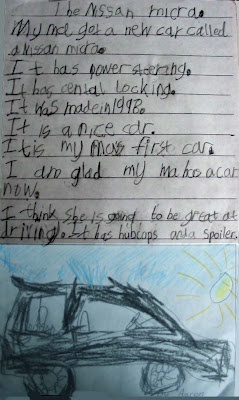 The Nissan micra.
My ma got a new car called
a Nissan micra.
It has power steering.
It has cental locking.
It was made in 1998.
It is a nice car.
It is my mas first car.
I am glad my ma has a car
now.
I think she is going to be great at
driving. It has hubcaps and a spoiler.